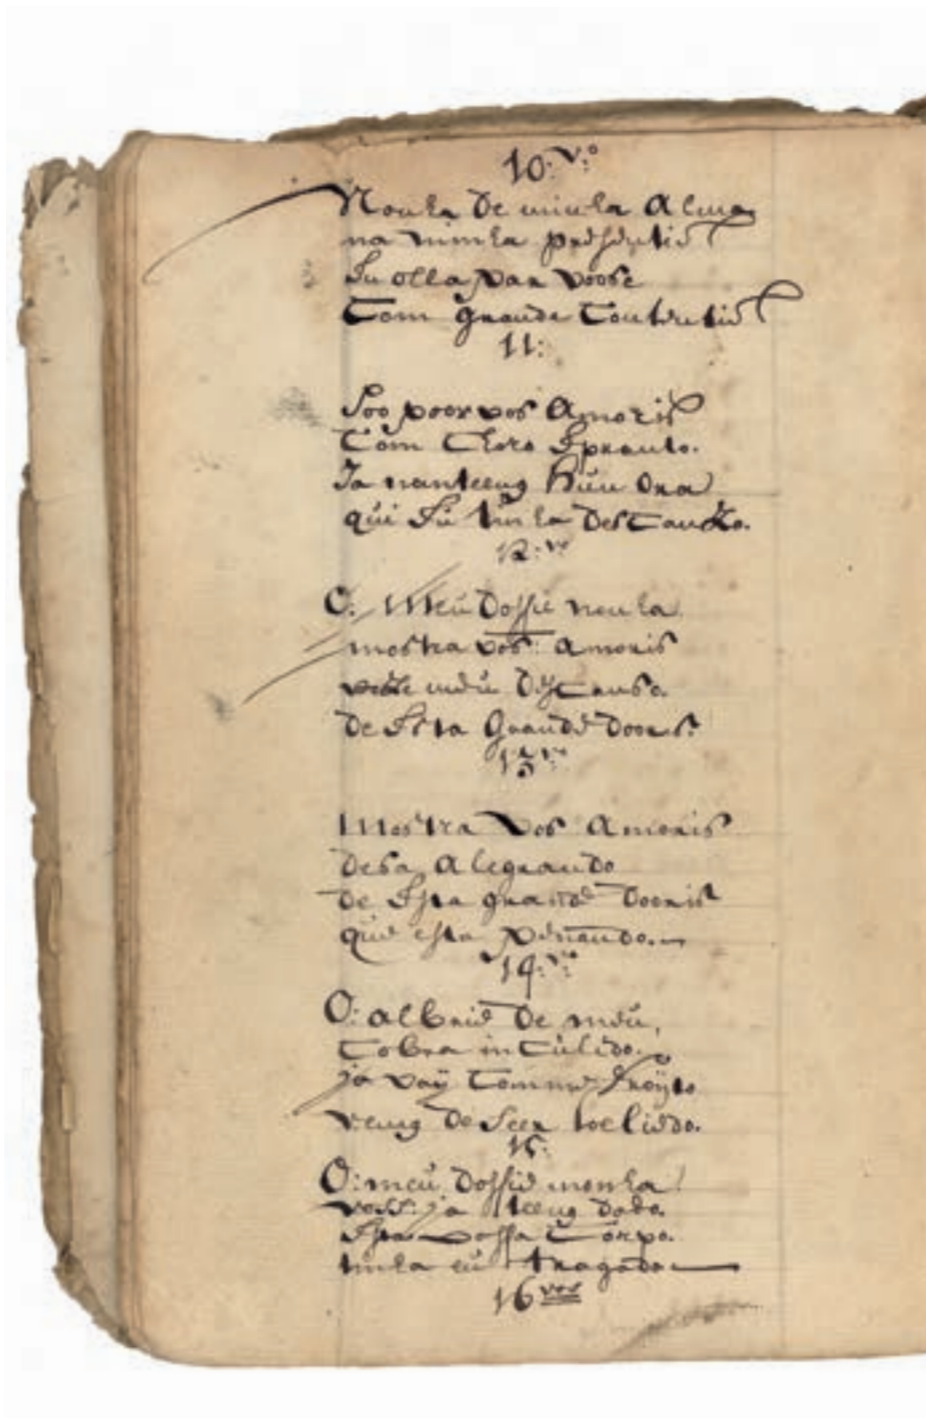 10: v:o
Nonha de minha Alma
na minha presentie
Iu olla par voose
Com grande Contentie
11:
Soo poor vos Amoris
Com Choro I pranto.
Ja nanteeng huũ Ora
qui Iũ tinha DesCancko.
12: vo
O: Meũ Dossie nonha
mostra vos: amoris
meũ DisCanso.
De Ista Grande Doors:
13 vo
Mostra Vos Amoris
Desa Alegrando
De Ista grande Dooris
que esta penando.
14: vo
O: albrie De meũ,
Cobra in Cũlido.
ja vaÿ Comme froÿto
veng De Seer Coelido.
15:
O: meũ Dossie nonha
voss: ja teeng dado.
Ista vossa Corpo.
tinha eũ tragado
16 vos